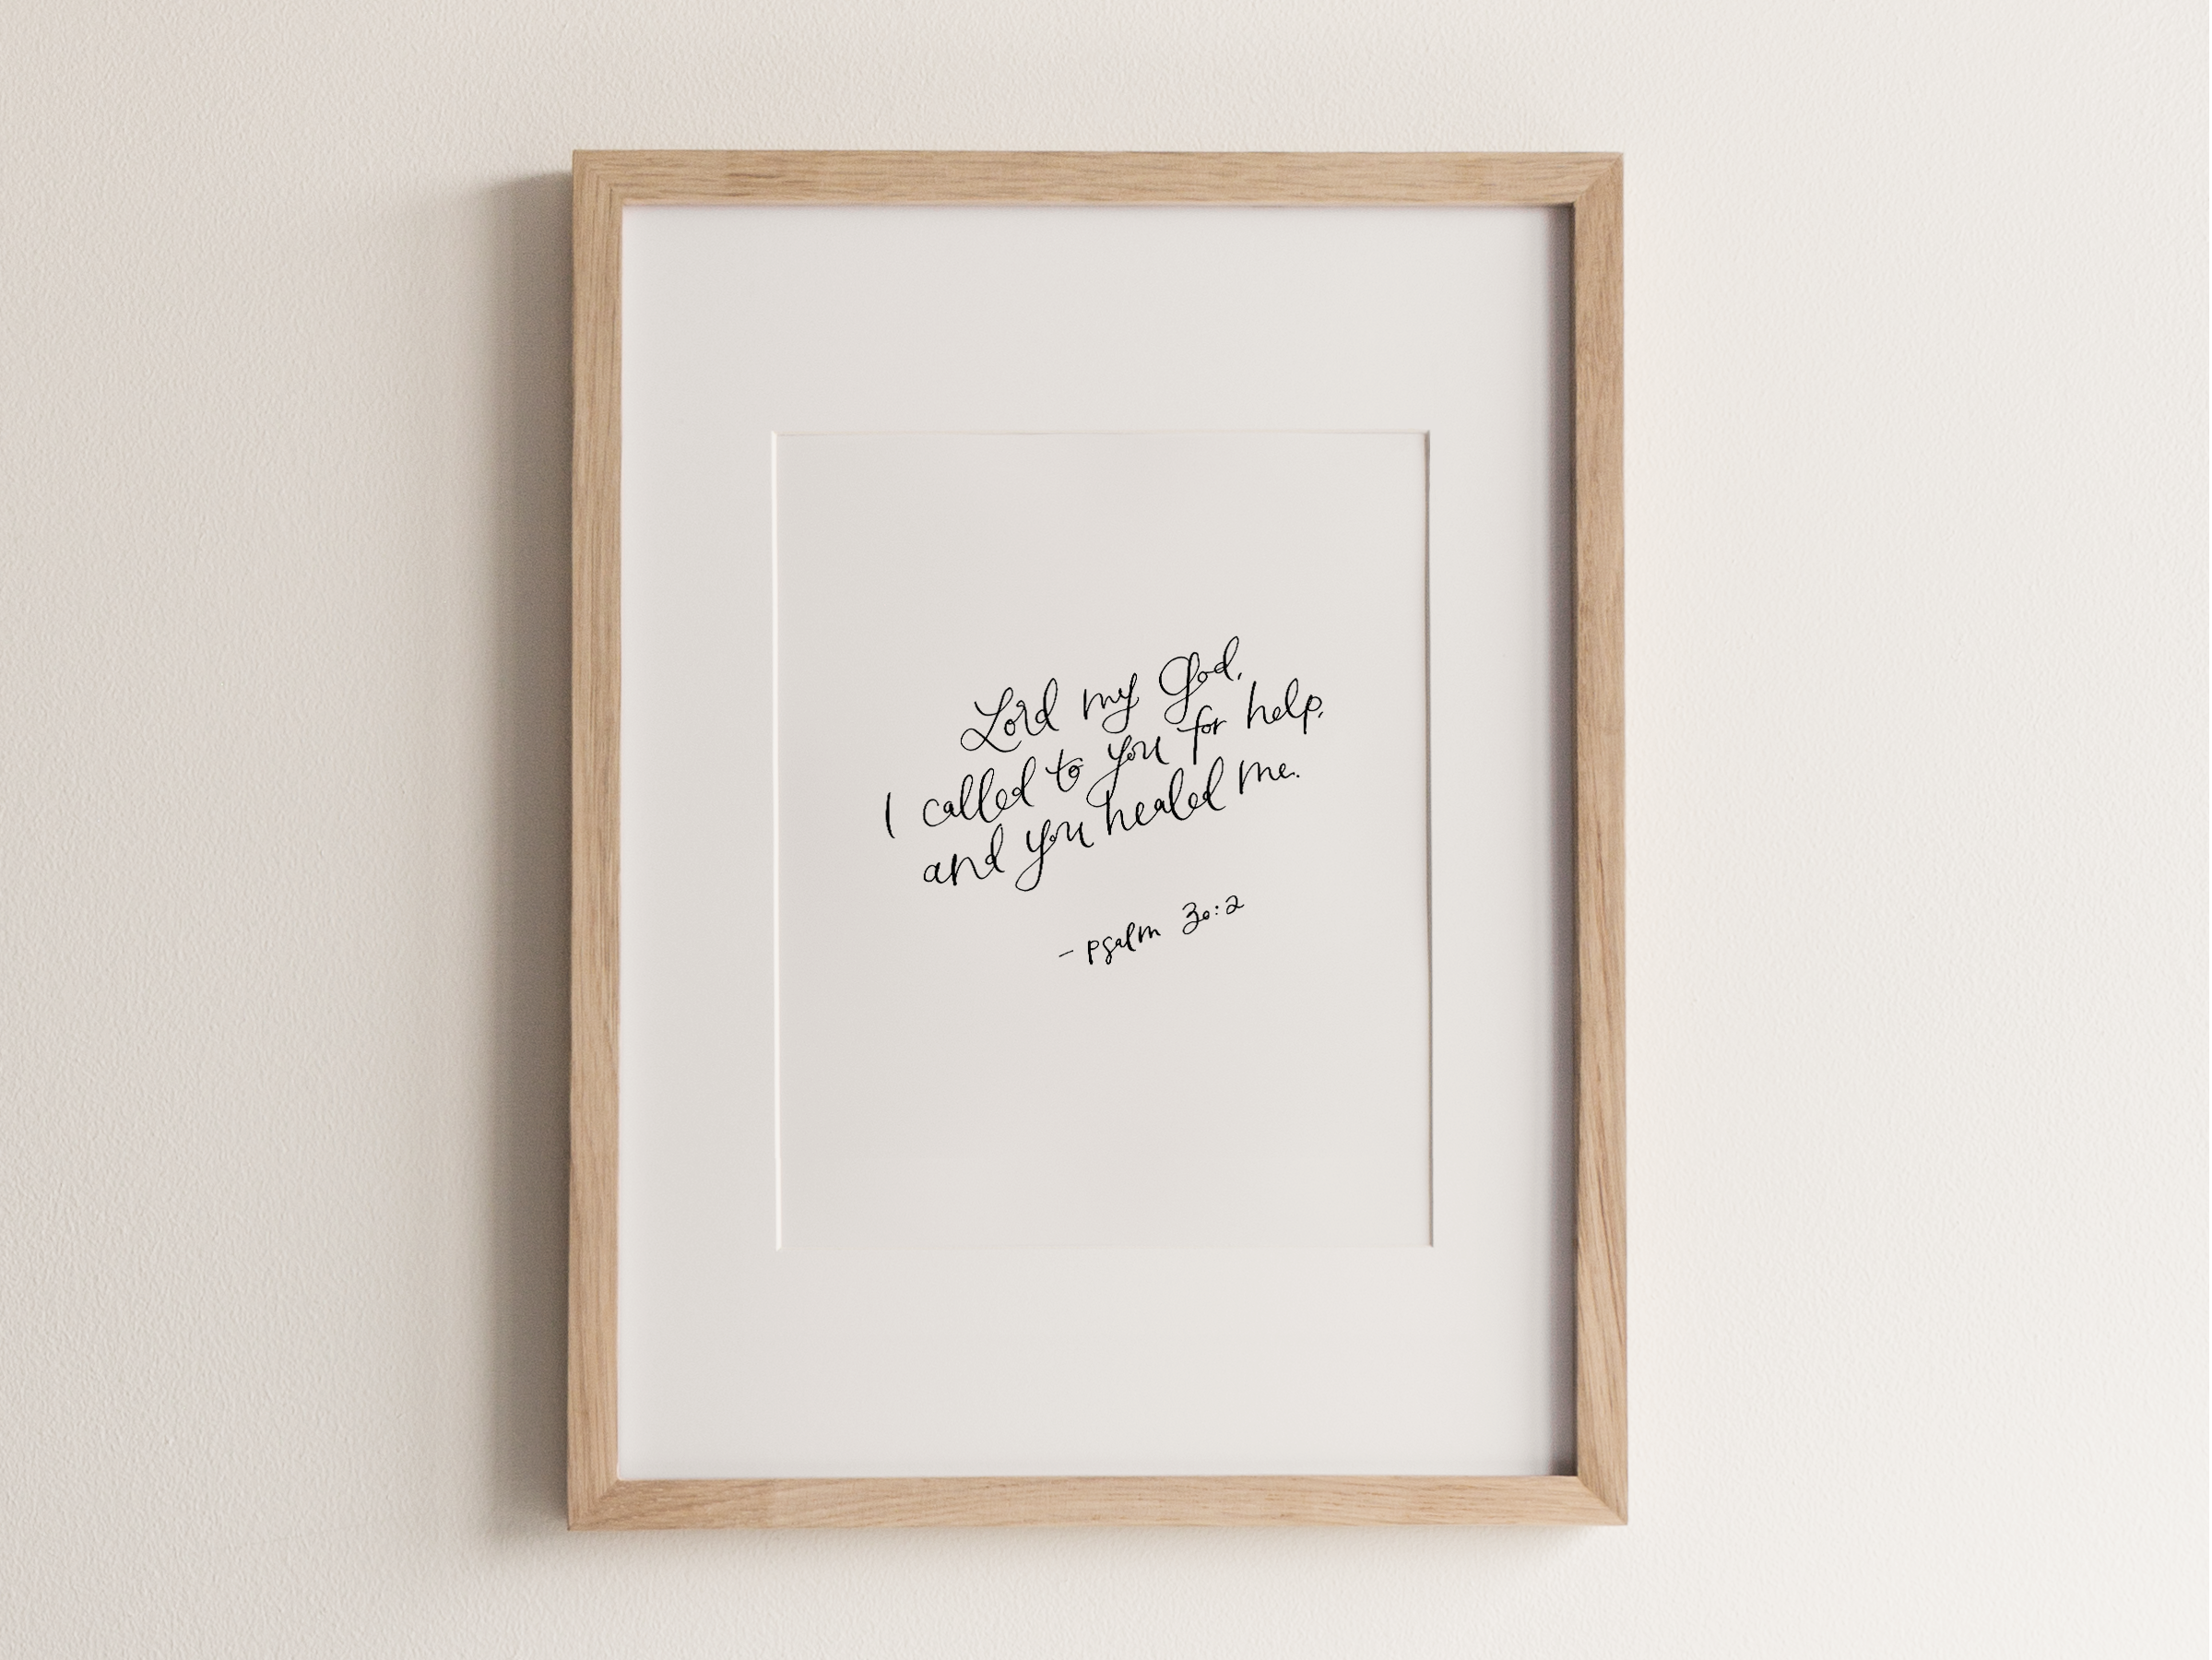 Lord my God,
I called to you for help,
and you healed me.
- psalm 30:2